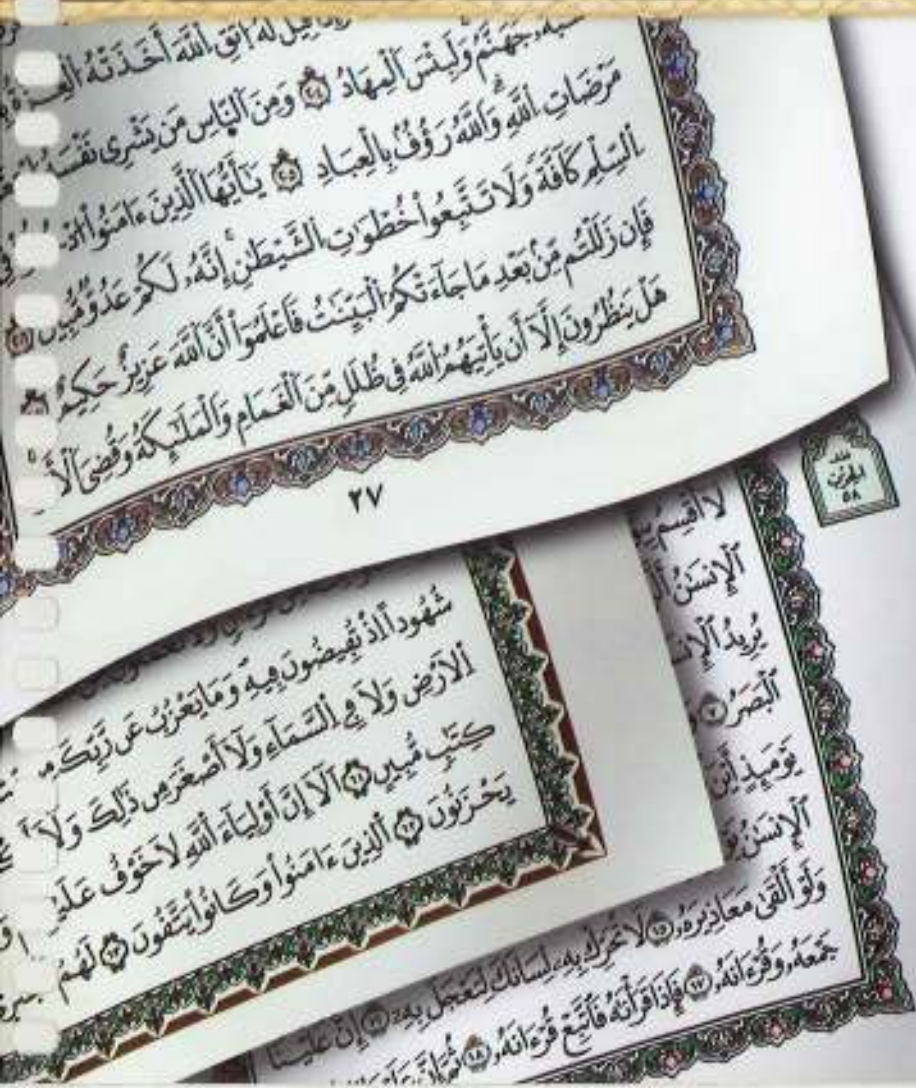 قِيلَ لَهُ اتَّقِ اللَّهَ أَخَذَتْهُ الْعِزَّةُ
جَهَنَّمُ وَلَبِئْسَ الْمِهَادُ وَمِنَ النَّاسِ مَن يَشْرِى نَفْسَهُ
مَرْضَاتِ اللَّهِ وَاللَّهُ رَؤُفٌ بِالْعِبَادِ يَٰأَيُّهَا الَّذِينَ ءَامَنُوا
السِّلْمِ كَآفَّةً وَلَا تَتَّبِعُوا خُطُوَٰتِ الشَّيْطَٰنِ إِنَّهُۥ لَكُمْ عَدُوٌّ مُّبِينٌ
فَإِن زَلَلْتُم مِّنۢ بَعْدِ مَا جَآءَتْكُمُ الْبَيِّنَٰتُ فَاعْلَمُوٓا أَنَّ اللَّهَ عَزِيزٌ حَكِيمٌ
هَلْ يَنظُرُونَ إِلَّآ أَن يَأْتِيَهُمُ اللَّهُ فِى ظُلَلٍ مِّنَ الْغَمَامِ وَالْمَلَٰٓئِكَةُ وَقُضِىَ
٢٧
الحزب
٥٨
شُهُودًا اِذْ تُفِيضُونَ فِيهِ وَمَا يَعْزُبُ عَن رَّبِّكَ
اِ۬لَارْضِ وَلَا فِے اِ۬لسَّمَآءِ وَلَآ أَصْغَرَ مِن ذَٰلِكَ وَلَآ
كِتَٰبٍ مُّبِينٍ اَلَآ إِنَّ أَوْلِيَآءَ اَ۬للَّهِ لَا خَوْفٌ
يَحْزَنُونَ اَ۬لذِينَ ءَامَنُوا وَكَانُوا يَتَّقُونَ لَهُمُ
لَآ أُقْسِمُ
ٱلْإِنسَٰنُ
يُرِيدُ ٱلْإِنسَٰنُ
ٱلْبَصَرُ ٧
يَوْمَئِذٍ أَيْنَ
ٱلْإِنسَٰنُ
وَلَوْ أَلْقَىٰ مَعَاذِيرَهُۥ ١٥ لَا تُحَرِّكْ بِهِۦ لِسَانَكَ لِتَعْجَلَ بِهِۦٓ ١٦ إِنَّ عَلَيْنَا
جَمْعَهُۥ وَقُرْءَانَهُۥ ١٧ فَإِذَا قَرَأْنَٰهُ فَٱتَّبِعْ قُرْءَانَهُۥ ١٨ ثُمَّ إِنَّ